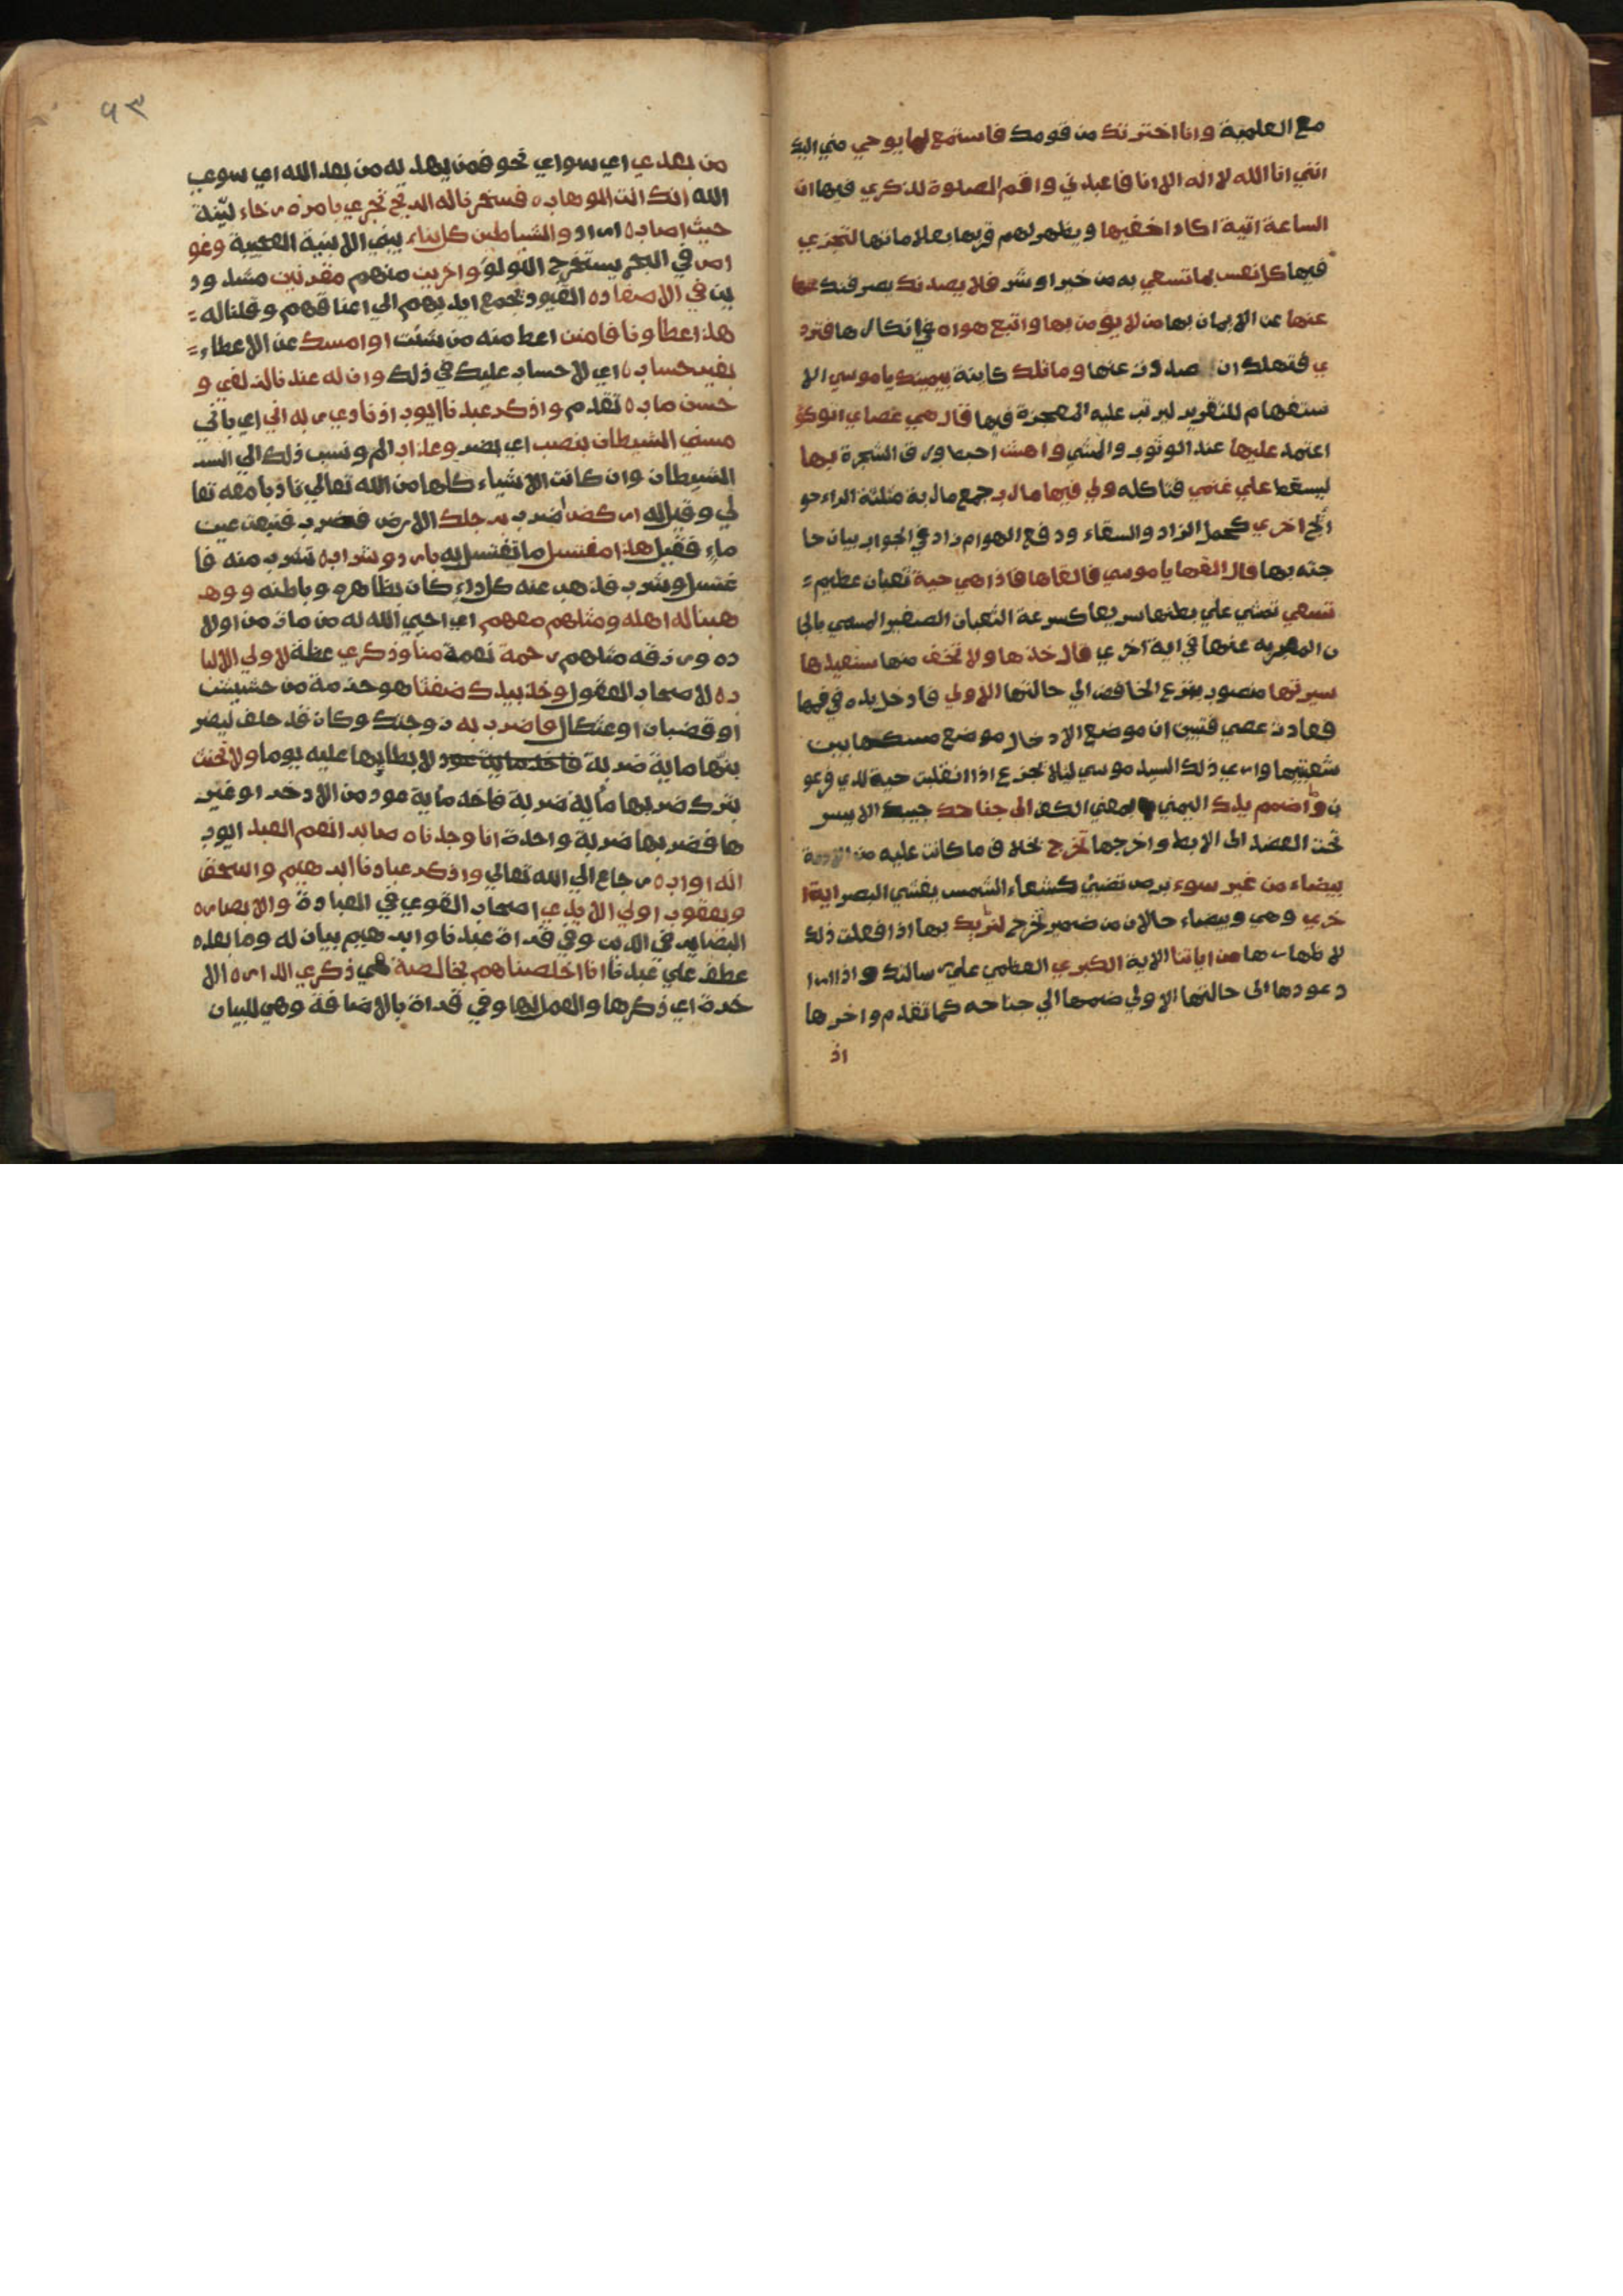 مع العلمية وانا اخترتك من قومك فاستمع لما يوحي مني اليك
انني انا الله لا اله الا انا فاعبدني واقم الصلوة لذكري فيها ان
الساعة اتية اكاد اخفيها ويظهر لهم قربها بعلاماتها لتجزي
فيها كل نفس بما تسعي به من خير او شر فلا يصدنك يصرفنك
عنها عن الايمان بها من لا يؤمن بها واتبع هواه في انكارها فترد
ي فتهلك ان صددت عنها وما تلك كاينة بيمينك يا موسي الا
ستفهام للتقرير ليرتب عليه المعجزة فيها قال هي عصاي اتوكؤ
اعتمد عليها عند الوثوب والمشي واهش اخبط ورق الشجرة بها
ليسقط علي غنمي فتاكله ولي فيها مارب جمع ماربة مثلثة الراء حو
ائج اخري كحمل الزاد والسقاء ودفع الهوام زاد في الجواب بيان حا
جته بها قال القها يا موسي فالقاها فاذا هي حية ثعبان عظيم
تسعي تمشي علي بطنها سريعا كسرعة الثعبان الصغير المسمي بالجا
ن المعبر به عنها في اية اخري قال خذها ولا تخف منها سنعيدها
سيرتها منصوب بنزع الخافض الي حالتها الاولي فادخل يده في فمها
فعادت عصي فتبين ان موضع الادخال موضع مسكها بين
شعبتيها واري ذلك السيد موسي ليلا يجزع اذا انقلبت حية لدي فرعو
ن واضمم يدك اليمني بمعني الكف الى جناحك جنبك الايسر
تحت العضد الى الابط واخرجها تخرج خلاف ما كانت عليه من الادمة
بيضاء من غير سوء برص تضيئ كشعاع الشمس يغشي البصر اية ا
خري وهي وبيضاء حالان من ضمير تخرج لنريك بها اذا فعلت ذلك
لاظهارها من اياتنا الاية الكبري العظمي علي رسالتك واذا ارا
د عودها الى حالتها الاولي ضمها الي جناحه كما تقدم واخرجها
اذ
٩٣
من بعدي اي سواي نحو فمن يهديه من بعد الله اي سوي
الله انك انت الوهاب ه فسخرنا له الريح تجري بامره رخاء لينة
حيث اصاب ه اراد والشياطين كل بناء يبني الابنية العجيبة وغو
اص في البحر يستخرج اللولؤ واخرين منهم مقرنين مشدود
ين في الاصفاد ه القيود بجمع ايديهم الي اعناقهم وقلنا له =
هذا عطاونا فامنن اعط منه من شئت او امسك عن الاعطاء =
بغير حساب ه اي لا حساب عليك في ذلك وان له عندنا لزلفي و
حسن ماب ه تقدم واذكر عبدنا ايوب اذ نادي ربه اني اي باني
مسني الشيطان بنصب اي بضر وعذاب الم ونسب ذلك الي
الشيطان وان كانت الاشياء كلها من الله تعالي تادبا معه تعا
لي وقيل له اركض اضرب برجلك الارض فضرب فنبعت عين
ماء فقيل هذا مغتسل ما تغتسل به بارد وشراب ه تشرب منه فا
غتسل وشرب فذهب عنه كل داء كان بظاهره وباطنه ووه
هبنا له اهله ومثلهم معهم اي احيي الله له من مات من اولا
ده ورزقه مثلهم رحمة نعمة منا وذكري عظة لاولي الالبا
ب ه لاصحاب العقول وخذ بيدك ضغثا هو حزمة من حشيش
او قضبان او عثكال فاضرب به زوجتك وكان قد حلف ليضر
بنها ماية ضربة فاخذ ماية عود لابطائها عليه يوما ولا تحنث
بترك ضربها ماية ضربة فاخذ ماية عود من الاذخر او غير
ها فضربها ضربة واحدة انا وجدناه صابرا نعم العبد ايوب
انه اواب ه رجاع الي الله تعالي واذكر عبادنا ابرهيم واسحق
ويعقوب اولي الايدي اصحاب القوي في العبادة والابصار ه
البصاير في الدين وفي قراة عبدنا وابرهيم بيان له وما بعده
عطف علي عبدنا انا اخلصناهم بخالصة هي ذكري الدار ه الا
خرة اي ذكرها والعمل لها وفي قراة بالاضافة وهي للبيان